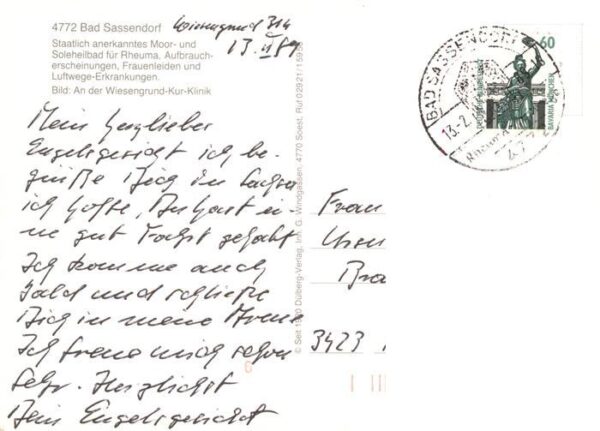 4772 Bad Sassendorf
Staatlich anerkanntes Moor- und
Soleheilbad für Rheuma, Aufbrauch-
erscheinungen, Frauenleiden und
Luftwege-Erkrankungen.
Bild: An der Wiesengrund-Kur-Klinik
Wiesengrund 314
13. II 89
Mein herzlieber
Engelsgesicht ich be-
grüße Dich in Sachsa
ich hoffe, Du hast ei-
ne gut Fahrt gehabt
Ich komme auch
bald und schließe
Dich in meine Arme
Ich freue mich schon
sehr. Herzlichst
Dein Engelsgesicht
© Seit 1920 Dülberg-Verlag, Inh. G. Windgassen, 4770 Soest, Ruf 02921/15938
Frau
Bra
3423
BAD SASSENDORF
13.2.
DEUTSCHE BUNDESPOST
60
BAVARIA MÜNCHEN